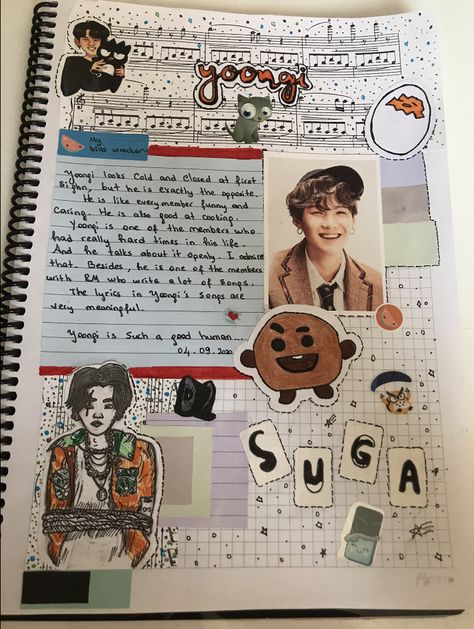 yoongi
My
bias wrecker
Yoongi looks Cold and closed at first
Sighn, but he is exactly the opposite.
He is like every member funny and
Caring. He is also good at cooking.
Yoongi is one of the members who
had really hard times in his life.
And he talks about it openly. I admire
that. Besides, he is one of the members
with RM who write a lot of songs.
The lyrics in Yoongi's Songs are
very meaningful.
Yoongi is Such a good human...
04.09.2020
SUGA